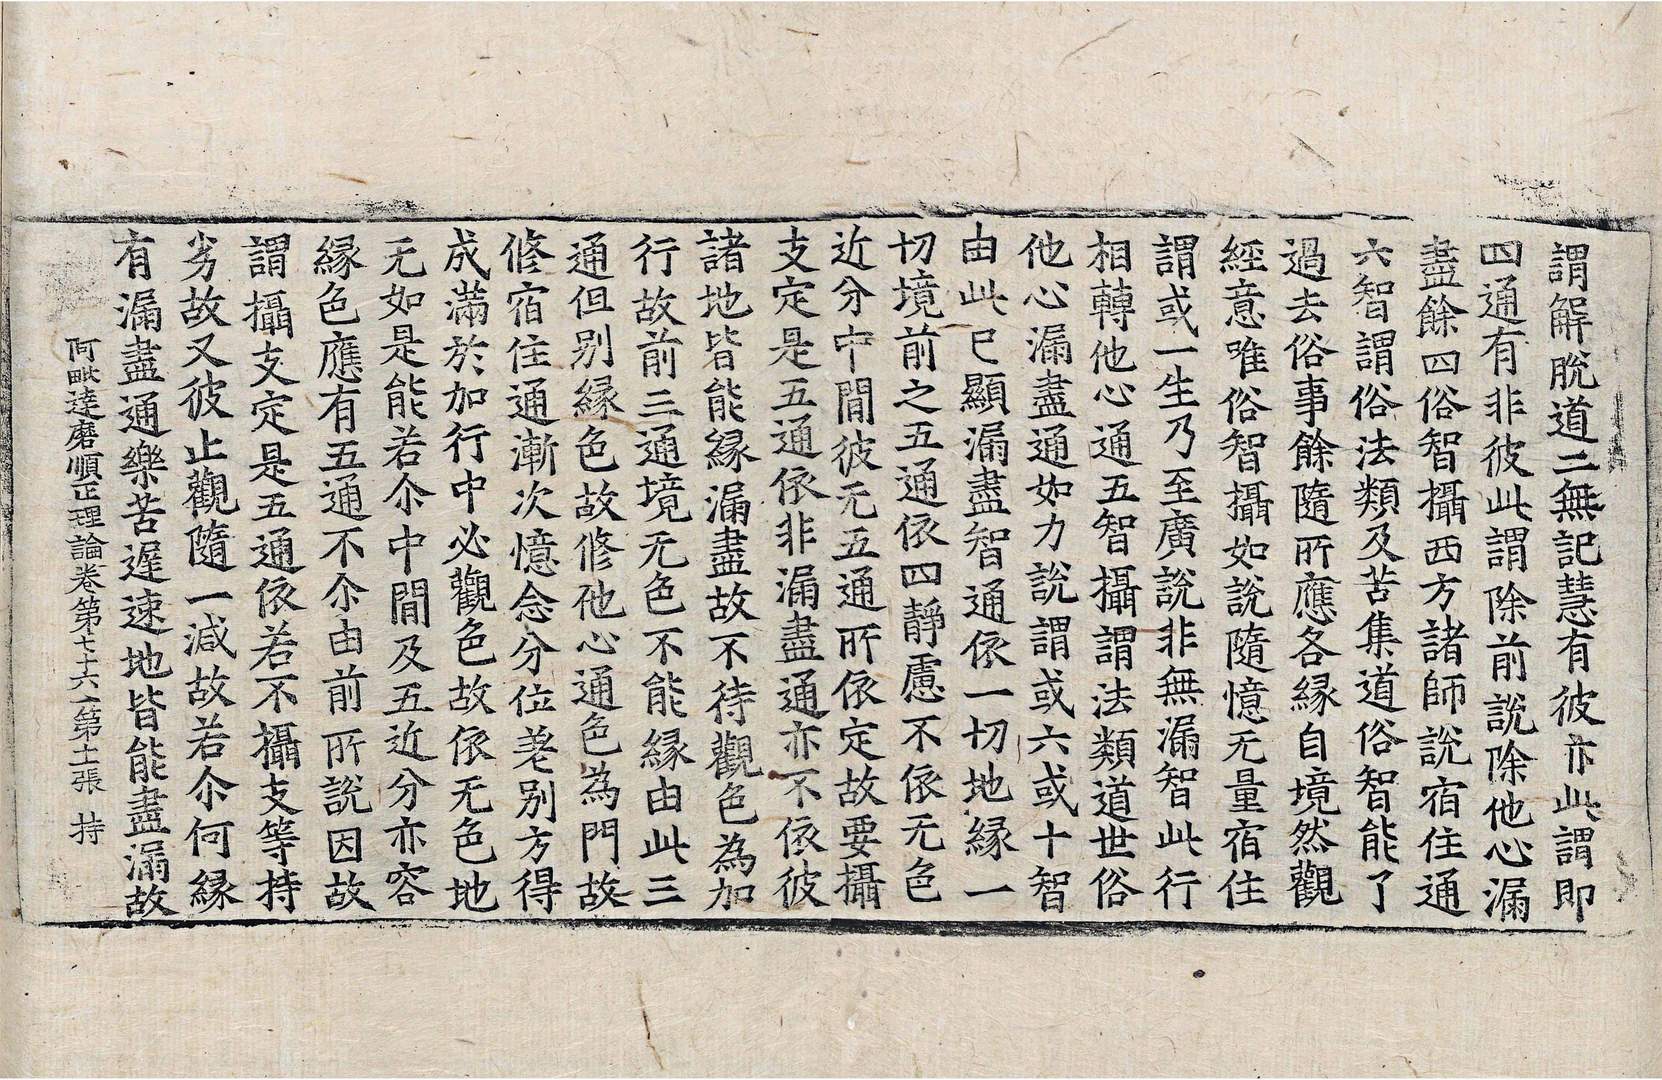 謂解脫道二無記慧有彼亦此謂即
四通有非彼此謂除前說除他心漏
盡餘四俗智攝西方諸師說宿住通
六智謂俗法類及苦集道俗智能了
過去俗事餘隨所應各緣自境然觀
經意唯俗智攝如說隨憶无量宿住
謂或一生乃至廣說非無漏智此行
相轉他心通五智攝謂法類道世俗
他心漏盡通如力說謂或六或十智
由此已顯漏盡智通依一切地緣一
切境前之五通依四靜慮不依无色
近分中間彼无五通所依定故要攝
支定是五通依非漏盡通亦不依彼
諸地皆能緣漏盡故不待觀色為加
行故前三通境无色不能緣由此三
通但別緣色故修他心通色為門故
修宿住通漸次憶念分位差別方得
成滿於加行中必觀色故依无色地
无如是能若尒中間及五近分亦容
緣色應有五通不尒由前所說因故
謂攝支定是五通依若不攝支等持
劣故又彼止觀隨一減故若尒何緣
有漏盡通樂苦遲速地皆能盡漏故
阿毗達磨順正理論卷第七十六 第十一張 持